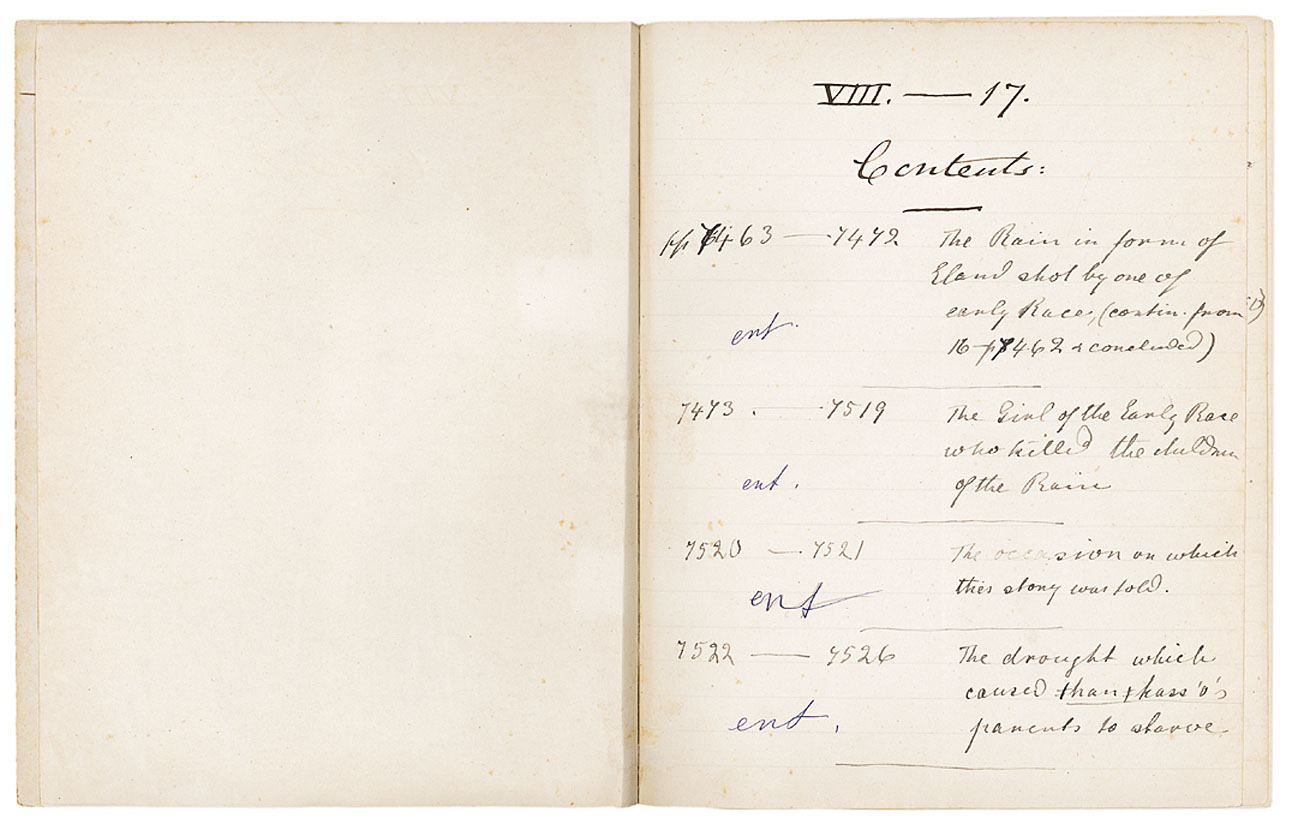 VIII. — 17.
Contents:
pp 7463 — 7472 The Rain in form of
Eland shot by one of
early Race, (contin. from
ent. 16 p 7462 & concluded)
7473. — 7519 The Girl of the Early Race
who killed the children
ent. of the Rain
7520 — 7521 The occasion on which
this story was told.
ent
7522 — 7526 The drought which
caused ǂhanǂkass'ō's
ent. parents to starve